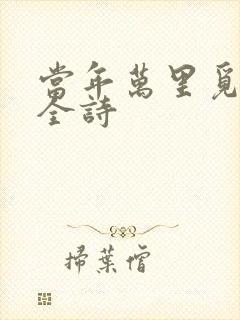 當年萬里覓
全詩
掃葉僧